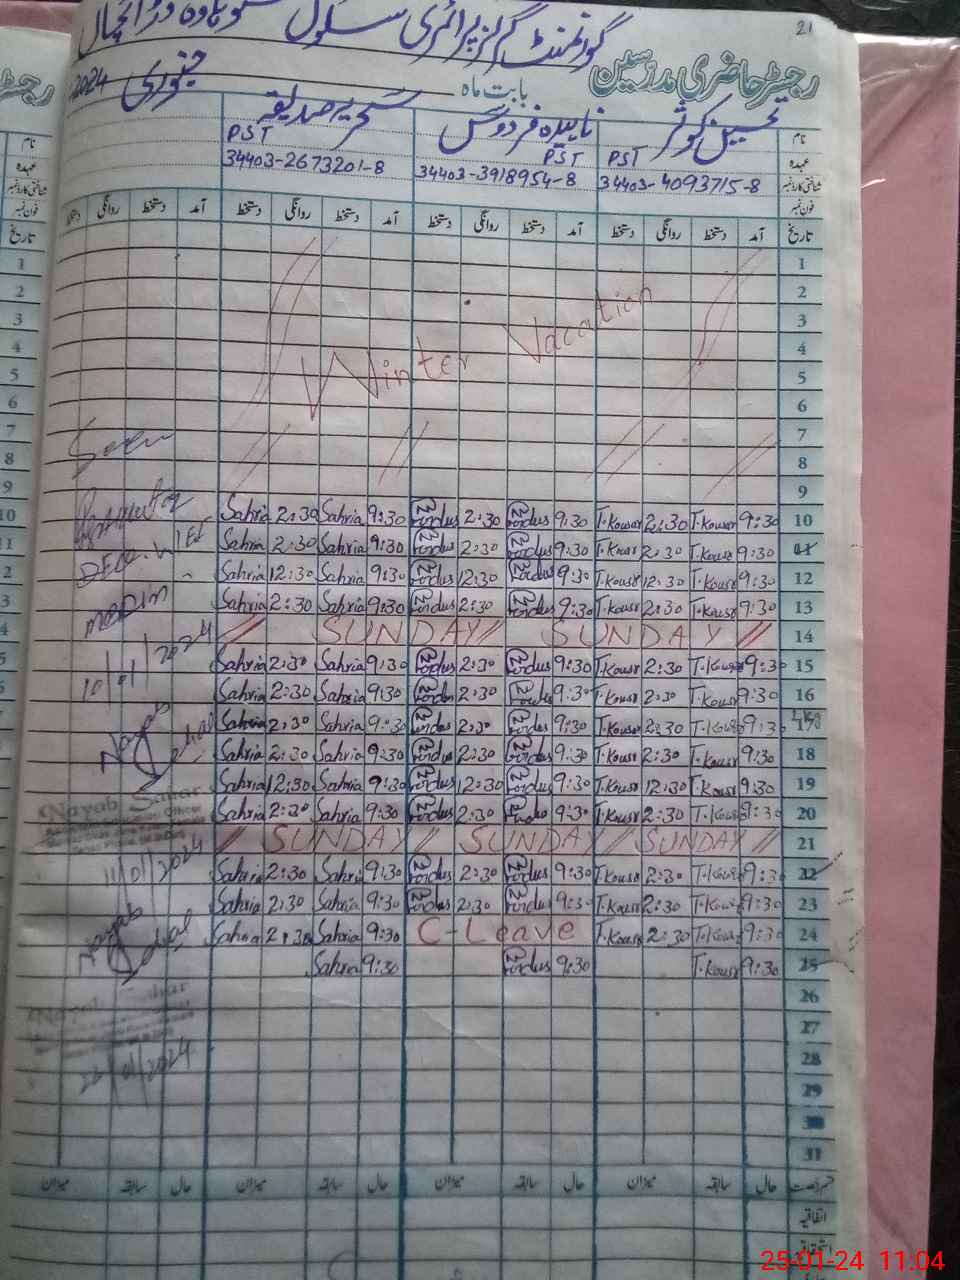 21
گورنمنٹ گرلز پرائمری سکول
رجسٹر حاضری مدرسین
بابت ماہ جنوری 2024
نام تحسین کوثر ناہیدہ فردوس سحریہ صدیقہ
عہدہ PST PST PST
شناختی کارڈ نمبر 34403-4093715-8 34403-3918954-8 34403-2673201-8
فون نمبر
تاریخ آمد دستخط روانگی دستخط آمد دستخط روانگی دستخط آمد دستخط روانگی دستخط آمد دستخط روانگی
1
2
3
4
5
6
7
8
9
Winter Vacation
Seen
Sahria 2:30 Sahria 9:30 Firdus 2:30 Firdus 9:30 T.Kousr 2:30 T.Kousr 9:30 10
Sahria 2:30 Sahria 9:30 Firdus 2:30 Firdus 9:30 T.Kousr 2:30 T.Kousr 9:30 11
Sahria 12:30 Sahria 9:30 Firdus 12:30 Firdus 9:30 T.Kousr 12:30 T.Kousr 9:30 12
Sahria 2:30 Sahria 9:30 Firdus 2:30 Firdus 9:30 T.Kousr 2:30 T.Kousr 9:30 13
SUNDAY SUNDAY 14
Sahria 2:30 Sahria 9:30 Firdus 2:30 Firdus 9:30 T.Kousr 2:30 T.Kousr 9:30 15
Sahria 2:30 Sahria 9:30 Firdus 2:30 Firdus 9:30 T.Kousr 2:30 T.Kousr 9:30 16
Sahria 2:30 Sahria 9:30 Firdus 2:30 Firdus 9:30 T.Kousr 2:30 T.Kousr 9:30 17
Sahria 2:30 Sahria 9:30 Firdus 2:30 Firdus 9:30 T.Kousr 2:30 T.Kousr 9:30 18
Sahria 12:30 Sahria 9:30 Firdus 12:30 Firdus 9:30 T.Kousr 12:30 T.Kousr 9:30 19
Sahria 2:30 Sahria 9:30 Firdus 2:30 Firdus 9:30 T.Kousr 2:30 T.Kousr 9:30 20
SUNDAY SUNDAY SUNDAY 21
Sahria 2:30 Sahria 9:30 Firdus 2:30 Firdus 9:30 T.Kousr 2:30 T.Kousr 9:30 22
Sahria 2:30 Sahria 9:30 Firdus 2:30 Firdus 9:30 T.Kousr 2:30 T.Kousr 9:30 23
Sahria 2:30 Sahria 9:30 C-Leave T.Kousr 2:30 T.Kousr 9:30 24
Sahria 9:30 Firdus 9:30 T.Kousr 9:30 25
26
27
28
29
30
31
10/01/2024
Nayab Sahar
11/01/2024
Nayab Sahar
22/01/2024
قسم رخصت حال سابقہ میزان حال سابقہ میزان حال سابقہ میزان حال سابقہ میزان
اتفاقیہ
استحقاقیہ
25-01-24 11:04